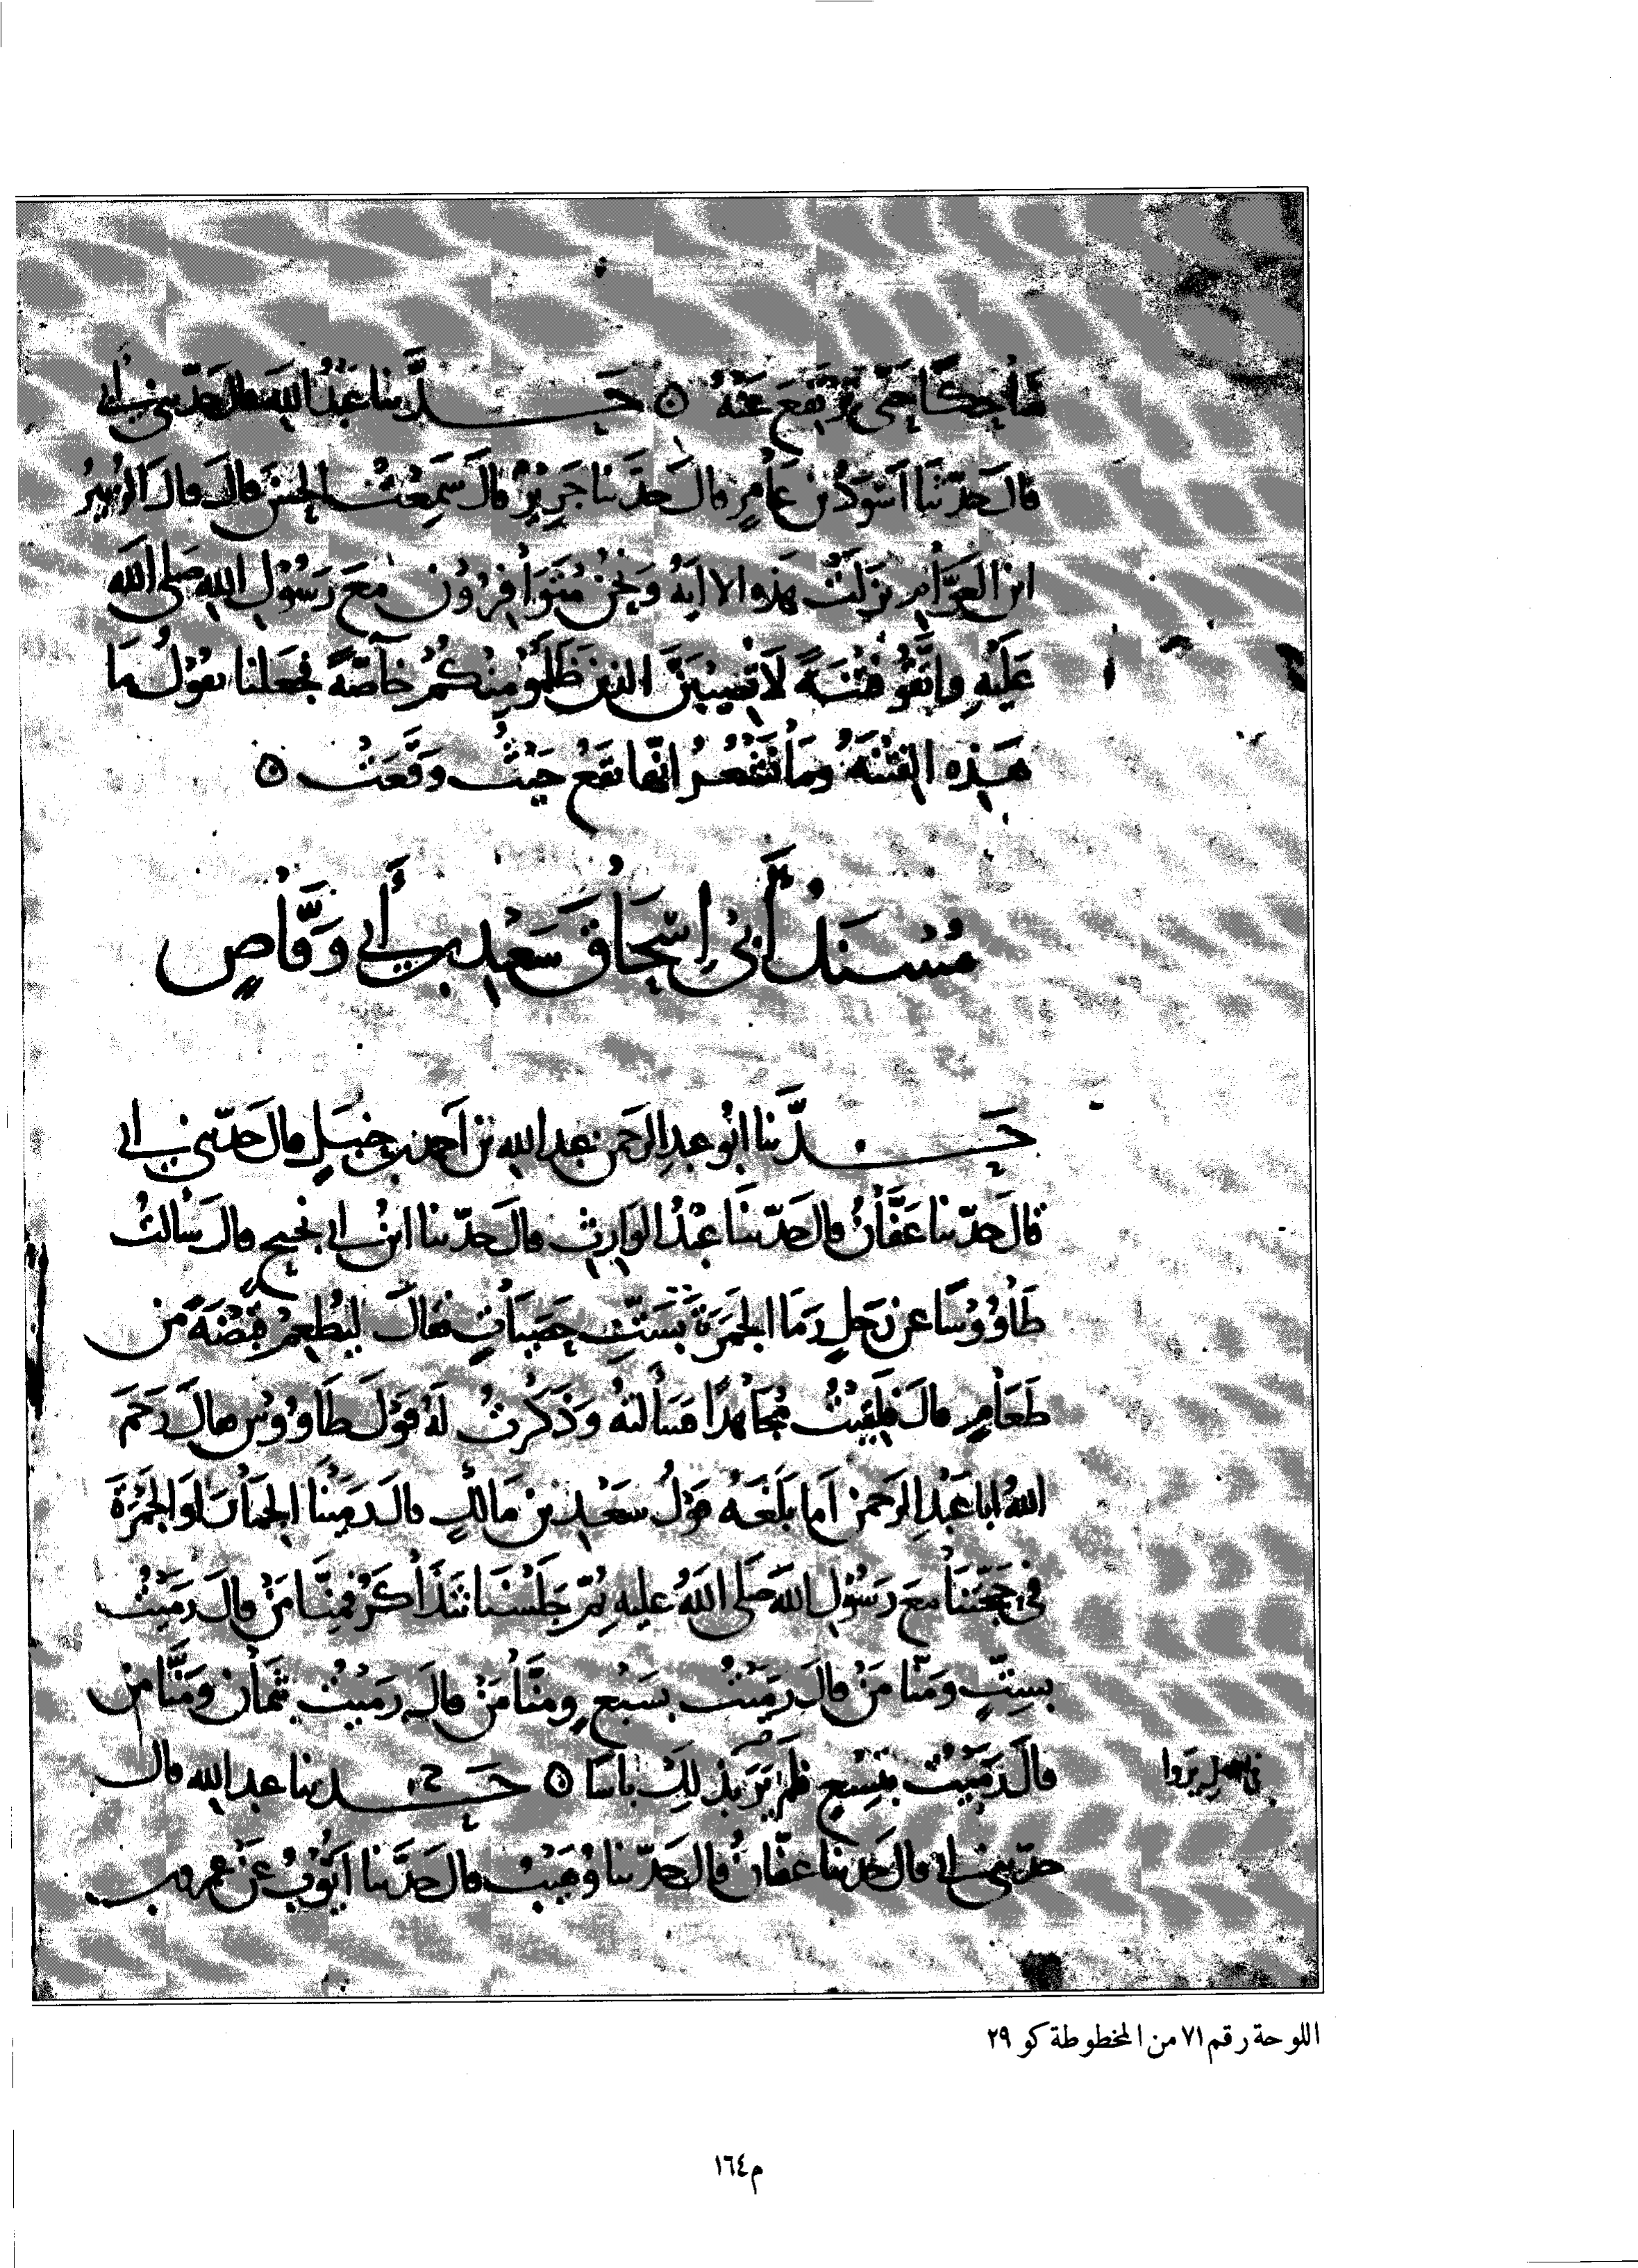 ضاحكا حتى يرتفع عنه ۝ حدثنا عبد الله قال حدثني أبي
قال حدثنا أسود بن عامر قال حدثنا جرير قال سمعت الحسن قال قال الزبير
ابن العوام نزلت هذه الاية ونحن متوافرون مع رسول الله صلى الله
عليه واتقو فتنة لا تصيبن الذين ظلمو منكم خاصة فجعلنا نقول ما
هذه الفتنة وما نشعر انها تقع حيث وقعت ۝
مسند أبي إسحاق سعد بن أبي وقاص
حدثنا ابو عبد الرحمن عبد الله بن أحمد بن حنبل قال حدثني ابي
قال حدثنا عفان قال حدثنا عبد الوارث قال حدثنا ابن ابي نجيح قال سألت
طاووسا عن رجل رما الجمرة بست حصيات فقال ليطعم قبضة من
طعام قال فلقيت مجاهدا فسألته وذكرت له قول طاووس فقال رحم
الله ابا عبد الرحمن أما بلغه قول سعد بن مالك قال رمينا الجمار او الجمرة
في حجتنا مع رسول الله صلى الله عليه ثم جلسنا نتذاكر فمنا من قال رميت
بست ومنا من قال رميت بسبع ومنا من قال رميت بثمان ومنا من
قال رميت بتسع فلم ير بذلك باسا ۝ حدثنا عبد الله قال
في الاصل يروا
حدثني ابي قال حدثنا عفان قال حدثنا وهيب قال حدثنا ايوب عن عمرو بن
اللوحة رقم ٧١ من المخطوطة كو ٢٩
م١٦٤